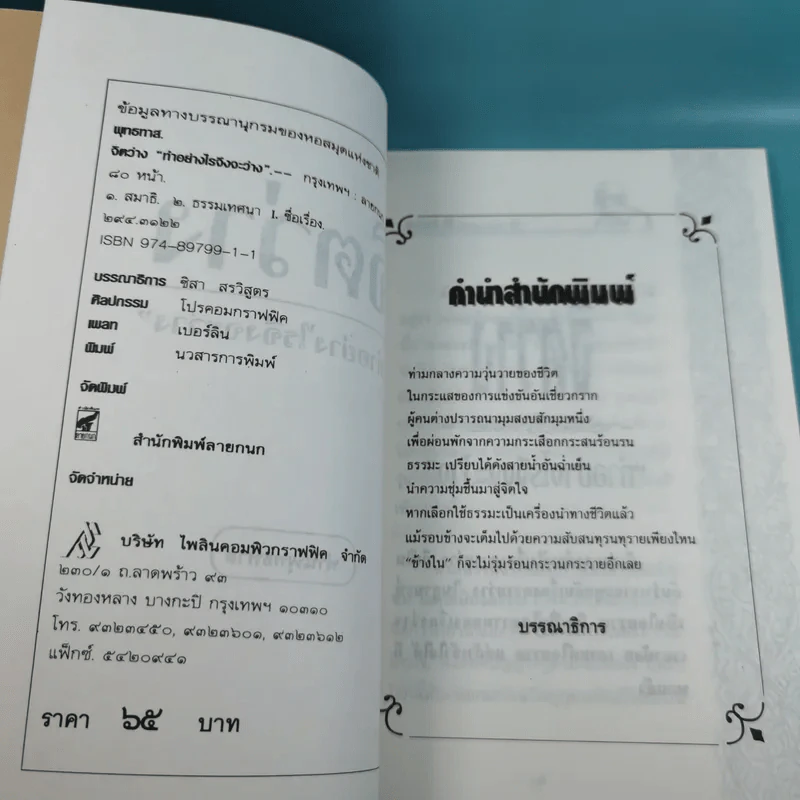 ข้อมูลทางบรรณานุกรมของหอสมุดแห่งชาติ
พุทธทาส.
จิตว่าง "ทำอย่างไรจึงจะว่าง".-- กรุงเทพฯ : ลายกนก
๘๐ หน้า.
๑. สมาธิ. ๒. ธรรมเทศนา I. ชื่อเรื่อง.
๒๙๔.๓๑๒๒
ISBN 974-89799-1-1
บรรณาธิการ ชิสา สรวิสูตร
ศิลปกรรม โปรคอมกราฟฟิค
เพลท เบอร์ลิน
พิมพ์ นวสารการพิมพ์
จัดพิมพ์
สำนักพิมพ์ลายกนก
จัดจำหน่าย
บริษัท ไพลินคอมพิวกราฟฟิค จำกัด
๒๓๐/๑ ถ.ลาดพร้าว ๙๓
วังทองหลาง บางกะปิ กรุงเทพฯ ๑๐๓๑๐
โทร. ๙๓๒๓๔๕๐, ๙๓๒๓๖๐๑, ๙๓๒๓๖๑๒
แฟ็กซ์. ๕๔๒๐๙๔๑
ราคา ๖๕ บาท
คำนำสำนักพิมพ์
ท่ามกลางความวุ่นวายของชีวิต
ในกระแสของการแข่งขันอันเชี่ยวกราก
ผู้คนต่างปรารถนามุมสงบสักมุมหนึ่ง
เพื่อผ่อนพักจากความกระเสือกกระสนร้อนรน
ธรรมะ เปรียบได้ดังสายน้ำอันฉ่ำเย็น
นำความชุ่มชื้นมาสู่จิตใจ
หากเลือกใช้ธรรมะเป็นเครื่องนำทางชีวิตแล้ว
แม้รอบข้างจะเต็มไปด้วยความสับสนทุรนทุรายเพียงไหน
"ข้างใน" ก็จะไม่รุ่มร้อนกระวนกระวายอีกเลย
บรรณาธิการ